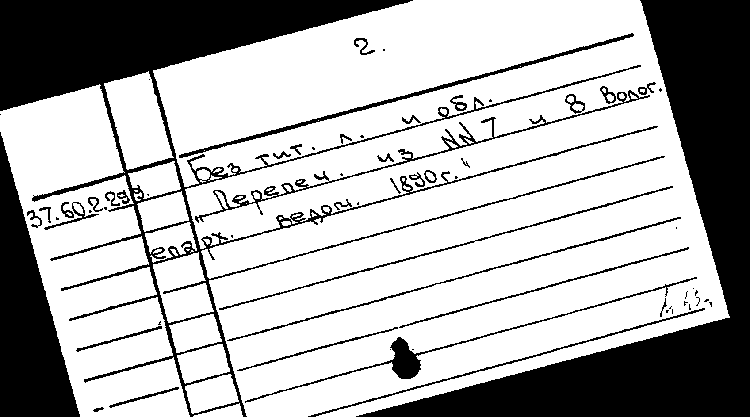 2.
Без тит. л. и обл.
37.60.2.299 „Перепеч. из NN 7 и 8 Волог.
епарх. ведом. 1890г."